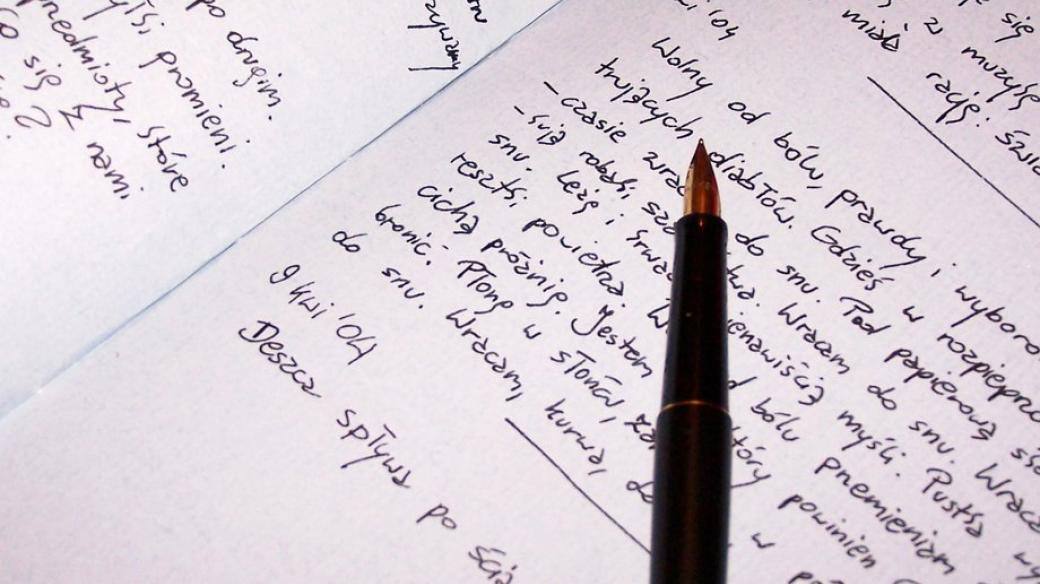 po drugim.
promieni.
przedmioty, które
o się z nami
zywamy
się
z muzykę
miała rację.
'04
Wolny od bólu, prawdy i wyboro
trujących diabłów. Gdzieś w rozpieprzo
-czasie wrac do snu. Pod papierową
robaki do snu. Wraca
snu. Leżę i ienawiścią myśli. Pustka wy
resztki powietrza. W d bólu przemieniam
cichą próżnię. Jestem tóry powinien
bronić. Płonę w słońcu, za w
do snu. Wracam, kurwa, do
9 kwi '04
Deszcz spływa po ścia